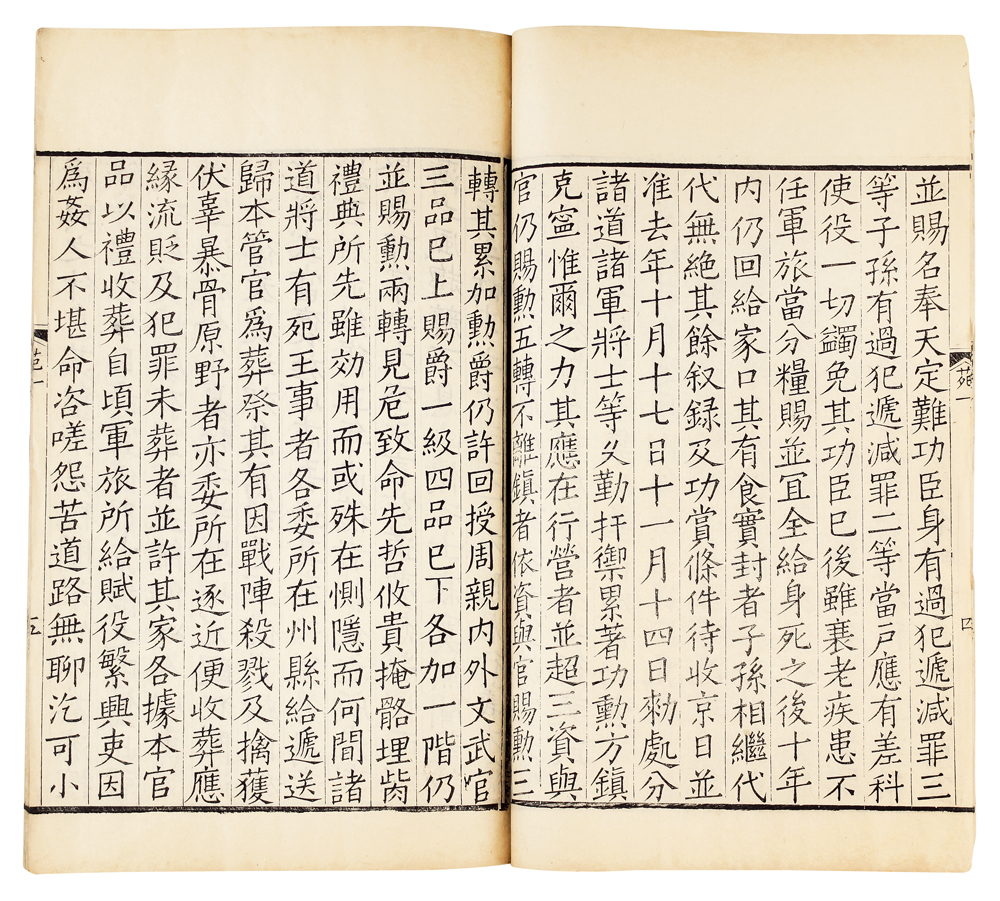 並賜名奉天定難功臣身有過犯遞減罪三
等子孫有過犯遞減罪二等當戶應有差科
使役一切蠲免其功臣已後雖衰老疾患不
任軍旅當分糧賜並冝全給身死之後十年
内仍回給家口其有食實封者子孫相繼代
代無絶其餘叙録及功賞條件待收京日並
准去年十月十七日十一月十四日勑處分
諸道諸軍將士等久勤扞禦累著功勲方鎮
克寧惟爾之力其應在行營者並超三資與
官仍賜勲五轉不離鎮者依資與官賜勲三
苑一
四
轉其累加勲爵仍許回授周親内外文武官
三品已上賜爵一級四品已下各加一階仍
並賜勲兩轉見危致命先哲攸貴掩骼埋胔
禮典所先雖効用而或殊在惻隱而何間諸
道將士有死王事者各委所在州縣給遞送
歸本管官爲葬祭其有因戰陣殺戮及擒獲
伏辜暴骨原野者亦委所在逐近便收葬應
縁流貶及犯罪未葬者並許其家各據本官
品以禮收葬自頃軍旅所給賦役繁興吏因
爲姦人不堪命咨嗟怨苦道路無聊汔可小
苑一
五